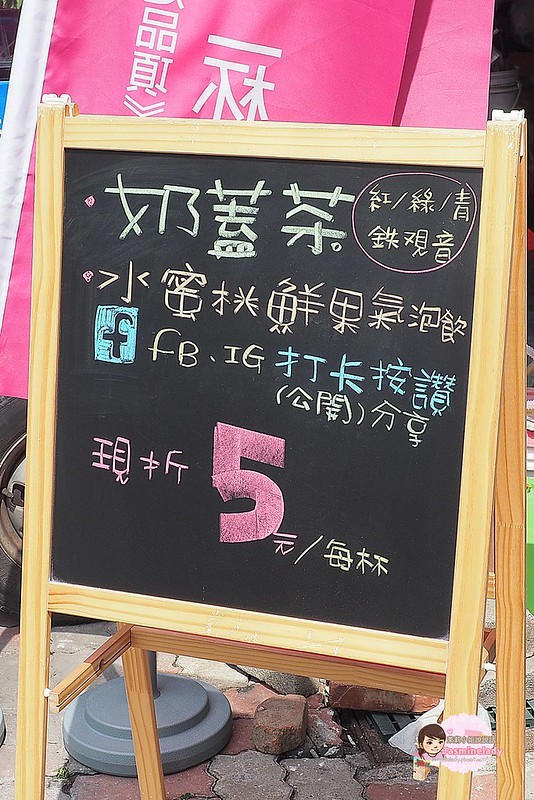 品項》
• 奶蓋茶 紅/綠/青
鉄観音
• 水蜜桃鮮果氣泡飲
f FB、IG 打卡按讚
(公開)分享
現折 5元/每杯
Yasminelady